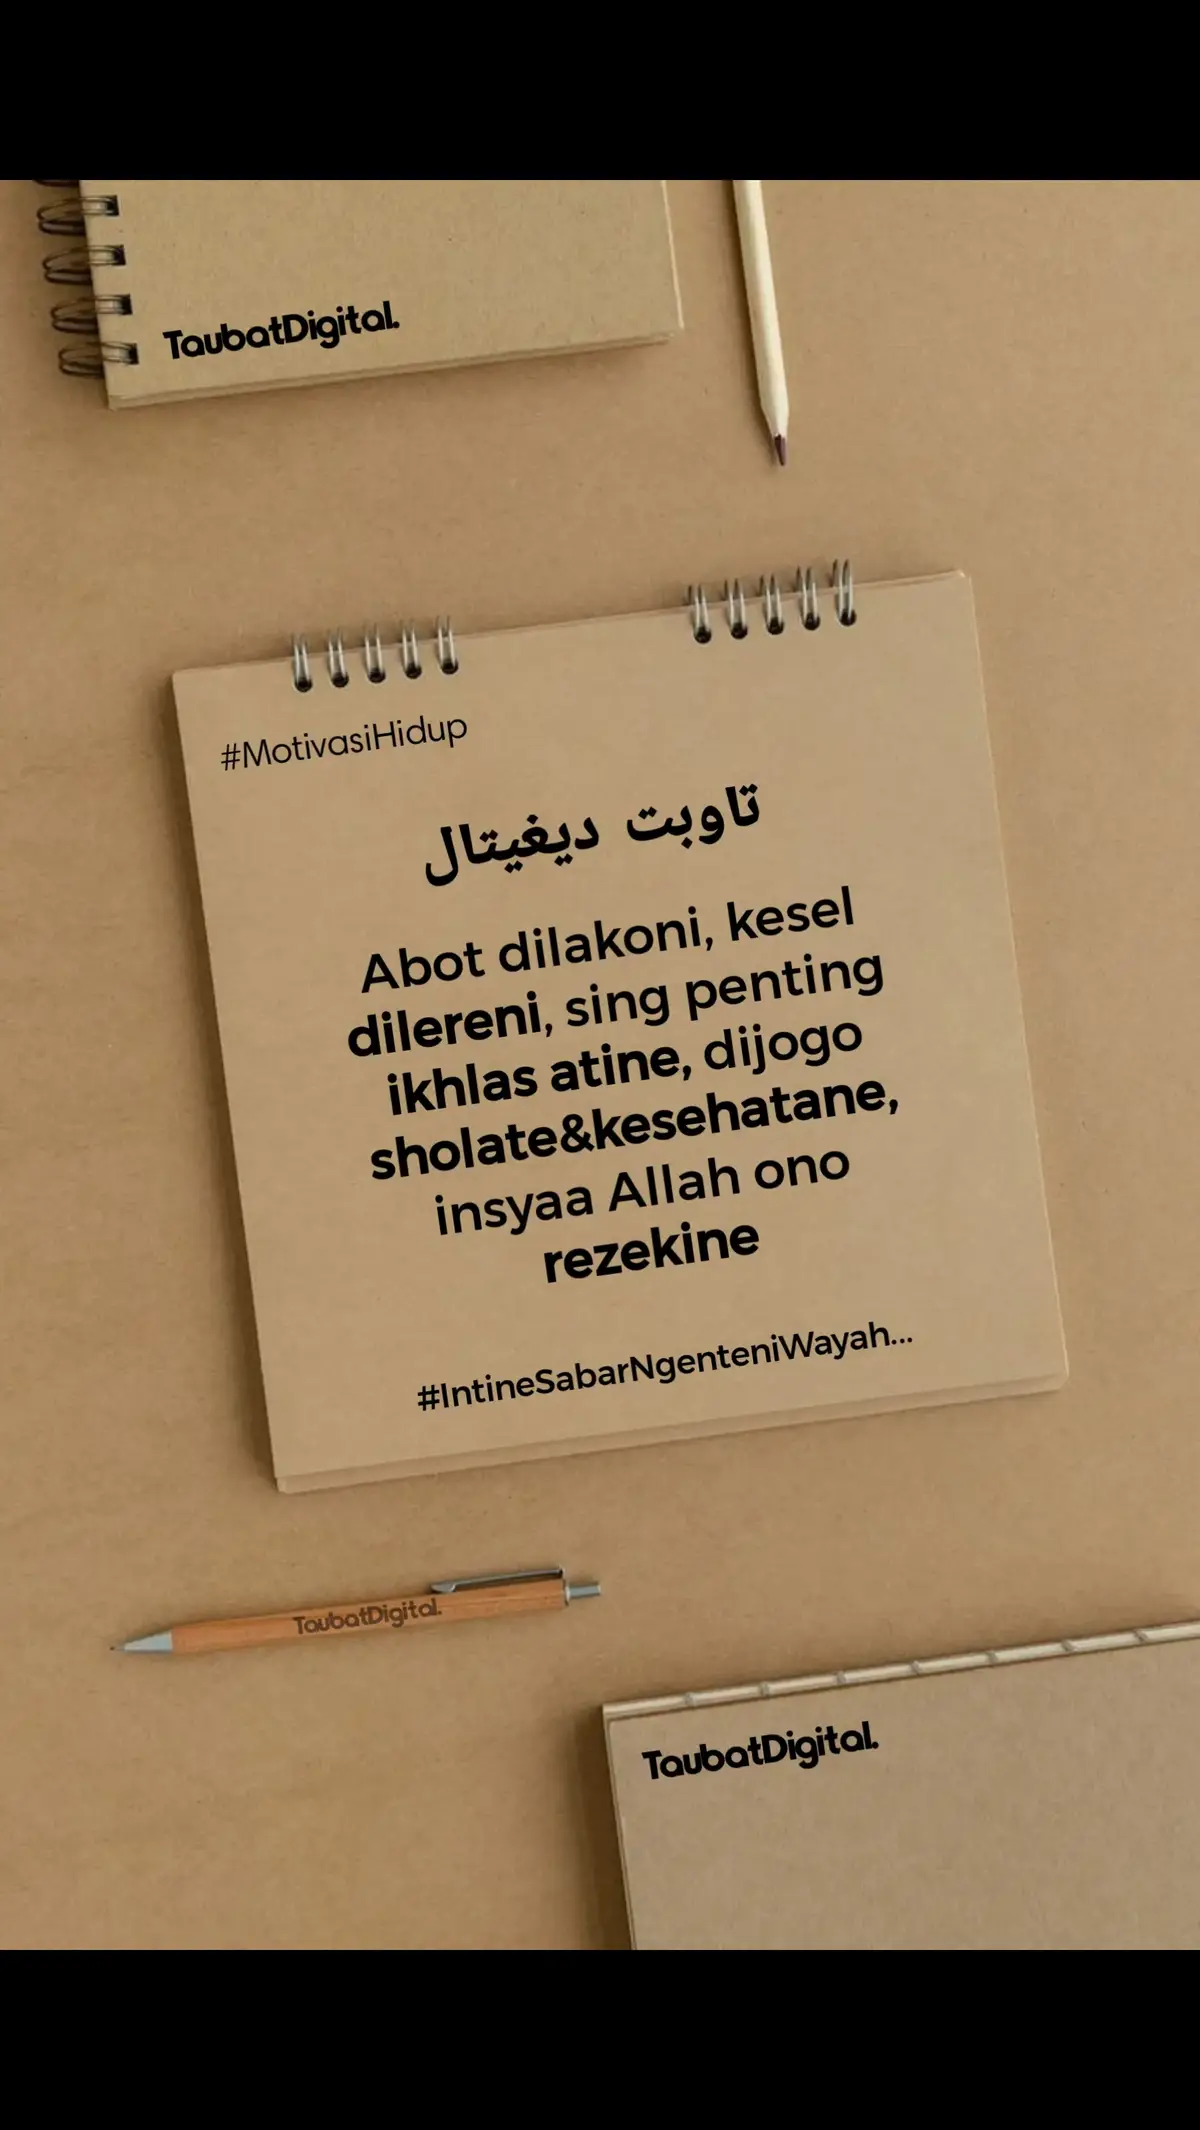 TaubatDigital.
#MotivasiHidup
تاوبت ديغيتال
Abot dilakoni, kesel
dilereni, sing penting
ikhlas atine, dijogo
sholate&kesehatane,
insyaa Allah ono
rezekine
#IntineSabarNgenteniWayah...
TaubatDigital.
TaubatDigital.